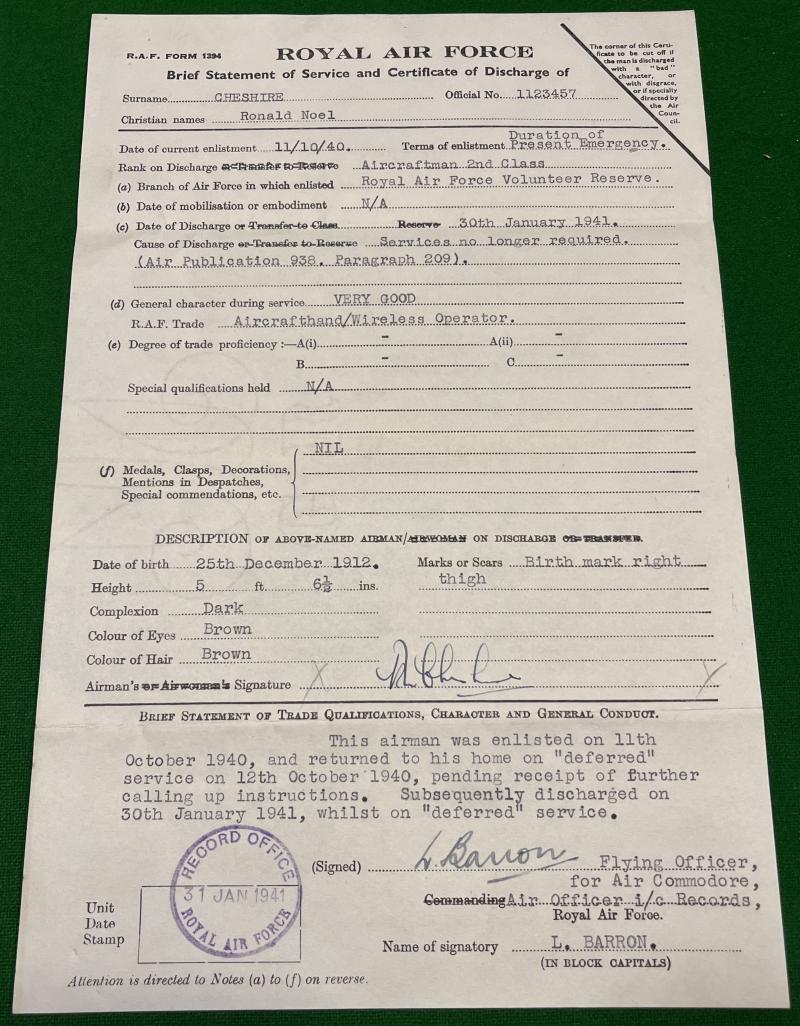 R.A.F. FORM 1394
ROYAL AIR FORCE
Brief Statement of Service and Certificate of Discharge of
The corner of this Certi-
ficate to be cut off if
the man is discharged
with a "bad"
character, or
with disgrace,
or if specially
directed by
the Air
Coun-
cil.
Surname CHESHIRE Official No. 1123457
Christian names Ronald Noel
Date of current enlistment 11/10/40. Terms of enlistment Duration of
Present Emergency.
Rank on Discharge or Transfer to Reserve Aircraftman 2nd Class
(a) Branch of Air Force in which enlisted Royal Air Force Volunteer Reserve.
(b) Date of mobilisation or embodiment N/A
(c) Date of Discharge or Transfer to Class Reserve 30th January 1941.
Cause of Discharge or Transfer to Reserve Services no longer required.
(Air Publication 938. Paragraph 209).
(d) General character during service VERY GOOD
R.A.F. Trade Aircrafthand/Wireless Operator.
(e) Degree of trade proficiency :—A(i) - A(ii) -
B. - C. -
Special qualifications held N/A
NIL
(f) Medals, Clasps, Decorations,
Mentions in Despatches,
Special commendations, etc.
DESCRIPTION OF ABOVE-NAMED AIRMAN/AIRWOMAN ON DISCHARGE OR TRANSFER.
Date of birth 25th December 1912. Marks or Scars Birth mark right
thigh
Height 5 ft. 6½ ins.
Complexion Dark
Colour of Eyes Brown
Colour of Hair Brown
Airman's or Airwoman's Signature
BRIEF STATEMENT OF TRADE QUALIFICATIONS, CHARACTER AND GENERAL CONDUCT.
This airman was enlisted on 11th
October 1940, and returned to his home on "deferred"
service on 12th October 1940, pending receipt of further
calling up instructions. Subsequently discharged on
30th January 1941, whilst on "deferred" service.
(Signed) L. Barron Flying Officer,
for Air Commodore,
Commanding Air Officer i/c Records,
Royal Air Force.
Unit
Date
Stamp
RECORD OFFICE
31 JAN 1941
ROYAL AIR FORCE
Name of signatory L. BARRON.
(IN BLOCK CAPITALS)
Attention is directed to Notes (a) to (f) on reverse.